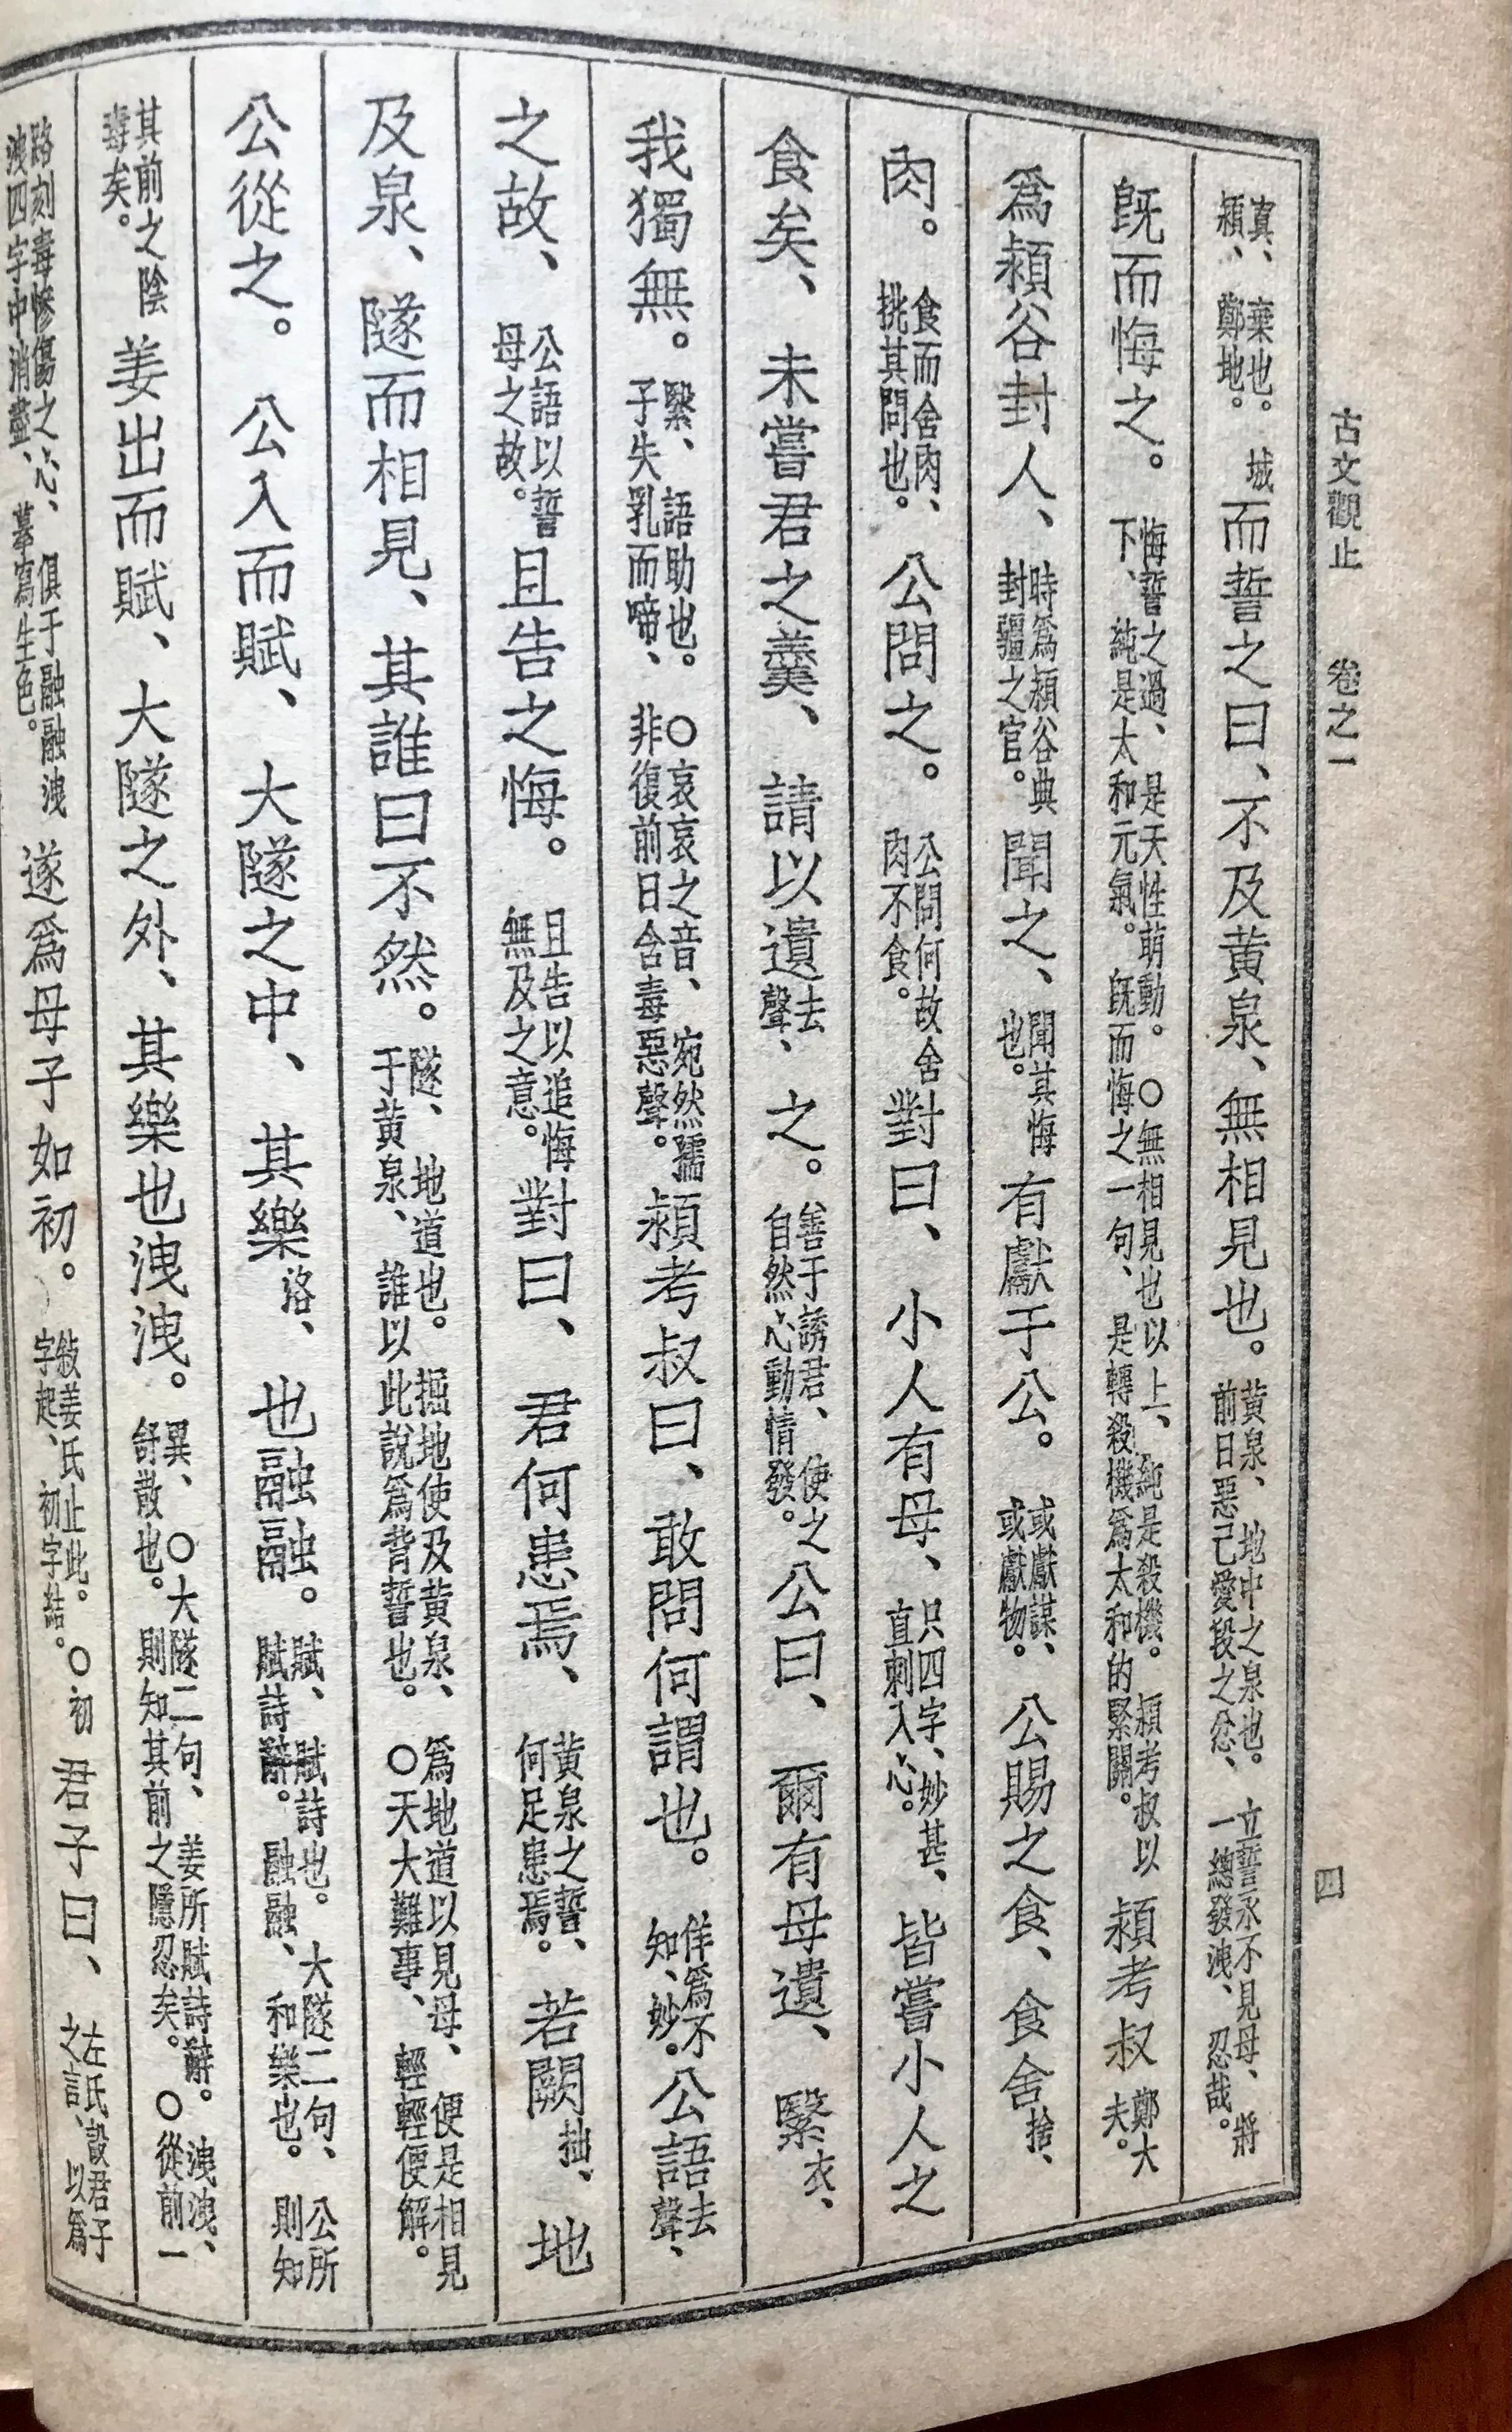 古文觀止　卷之一　四
寘、棄也。城潁、鄭地。而誓之曰、不及黃泉、無相見也。黃泉、地中之泉也。立誓永不見母、將前日惡己愛段之忿、一總發洩、忍哉。
旣而悔之。悔誓之過、是天性萌動。○無相見也以上、純是殺機。潁考叔以下、純是太和元氣。旣而悔之一句、是轉殺機爲太和的緊關。潁考叔鄭大夫。
爲潁谷封人、時爲潁谷典封疆之官。聞之、聞其悔也。有獻于公。或獻謀、或獻物。公賜之食、食舍捨、
肉。食而舍肉、挑其問也。公問之。公問何故舍肉不食。對曰、小人有母、只四字、妙甚、直刺入心。皆嘗小人之
食矣、未嘗君之羹、請以遺去聲、之。善于誘君、使之自然心動情發。公曰、爾有母遺、繄衣、
我獨無。繄、語助也。○哀哀之音、宛然孺子失乳而啼、非復前日含毒惡聲。潁考叔曰、敢問何謂也。佯爲不知、妙。公語去聲、
之故、公語以誓母之故。且告之悔。且告以追悔無及之意。對曰、君何患焉、黃泉之誓、何足患焉。若闕掘、地
及泉、隧而相見、其誰曰不然。隧、地道也。掘地使及黃泉、爲地道以見母、便是相見于黃泉、誰以此說爲背誓也。○天大難事、輕輕便解。
公從之。公入而賦、大隧之中、其樂洛、也融融。賦、賦詩也。大隧二句、公所賦詩辭。融融、和樂也。則知
其前之陰毒矣。姜出而賦、大隧之外、其樂也洩洩。異、○大隧二句、姜所賦詩辭。洩洩、舒散也。則知其前之隱忍矣。○從前一
路刻毒慘傷之心、俱于融融洩洩四字中消盡、摹寫生色。遂爲母子如初。敍姜氏止此。○初字起、初字結。君子曰、左氏設君子之言、以爲